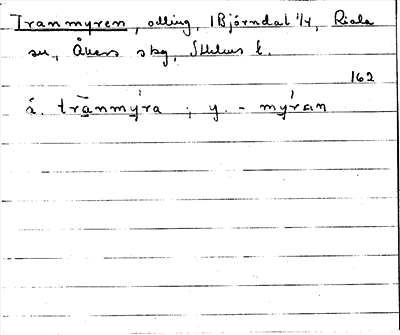 Tranmyren, odling, 1 Björndal 1/4, Riala
sn., Åkers skg, Sthlms l.
162
ä. tranmý̱ra ; y. - mýran